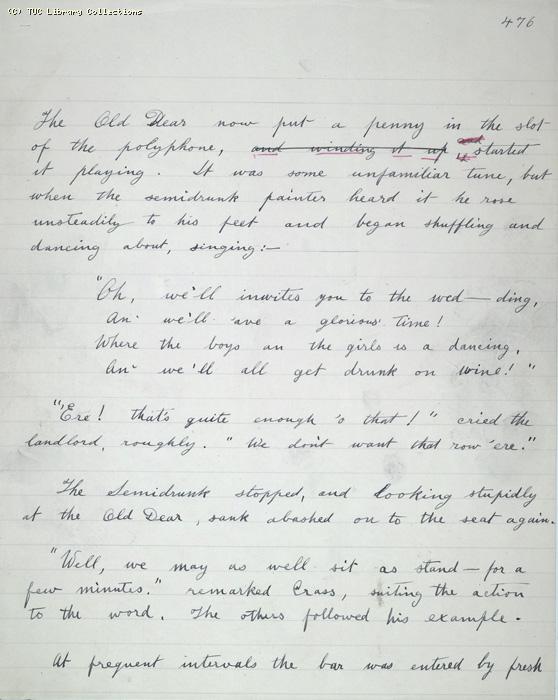 (C) TUC Library Collections
476
The Old Dear now put a penny in the slot
of the polyphone, and winding it up and started
it playing. It was some unfamiliar tune, but
when the semidrunk painter heard it he rose
unsteadily to his feet and began shuffling and
dancing about, singing:—
"Oh, we'll inwites you to the wed—ding,
An' we'll 'ave a glorious time!
Where the boys an the girls is a dancing,
An' we'll all get drunk on wine!"
"'Ere! that's quite enough 'o that!" cried the
landlord, roughly. "We don't want that row 'ere."
The Semidrunk stopped, and looking stupidly
at the Old Dear, sank abashed on to the seat again.
"Well, we may as well sit as stand — for a
few minutes." remarked Crass, suiting the action
to the word. The others followed his example.
At frequent intervals the bar was entered by fresh